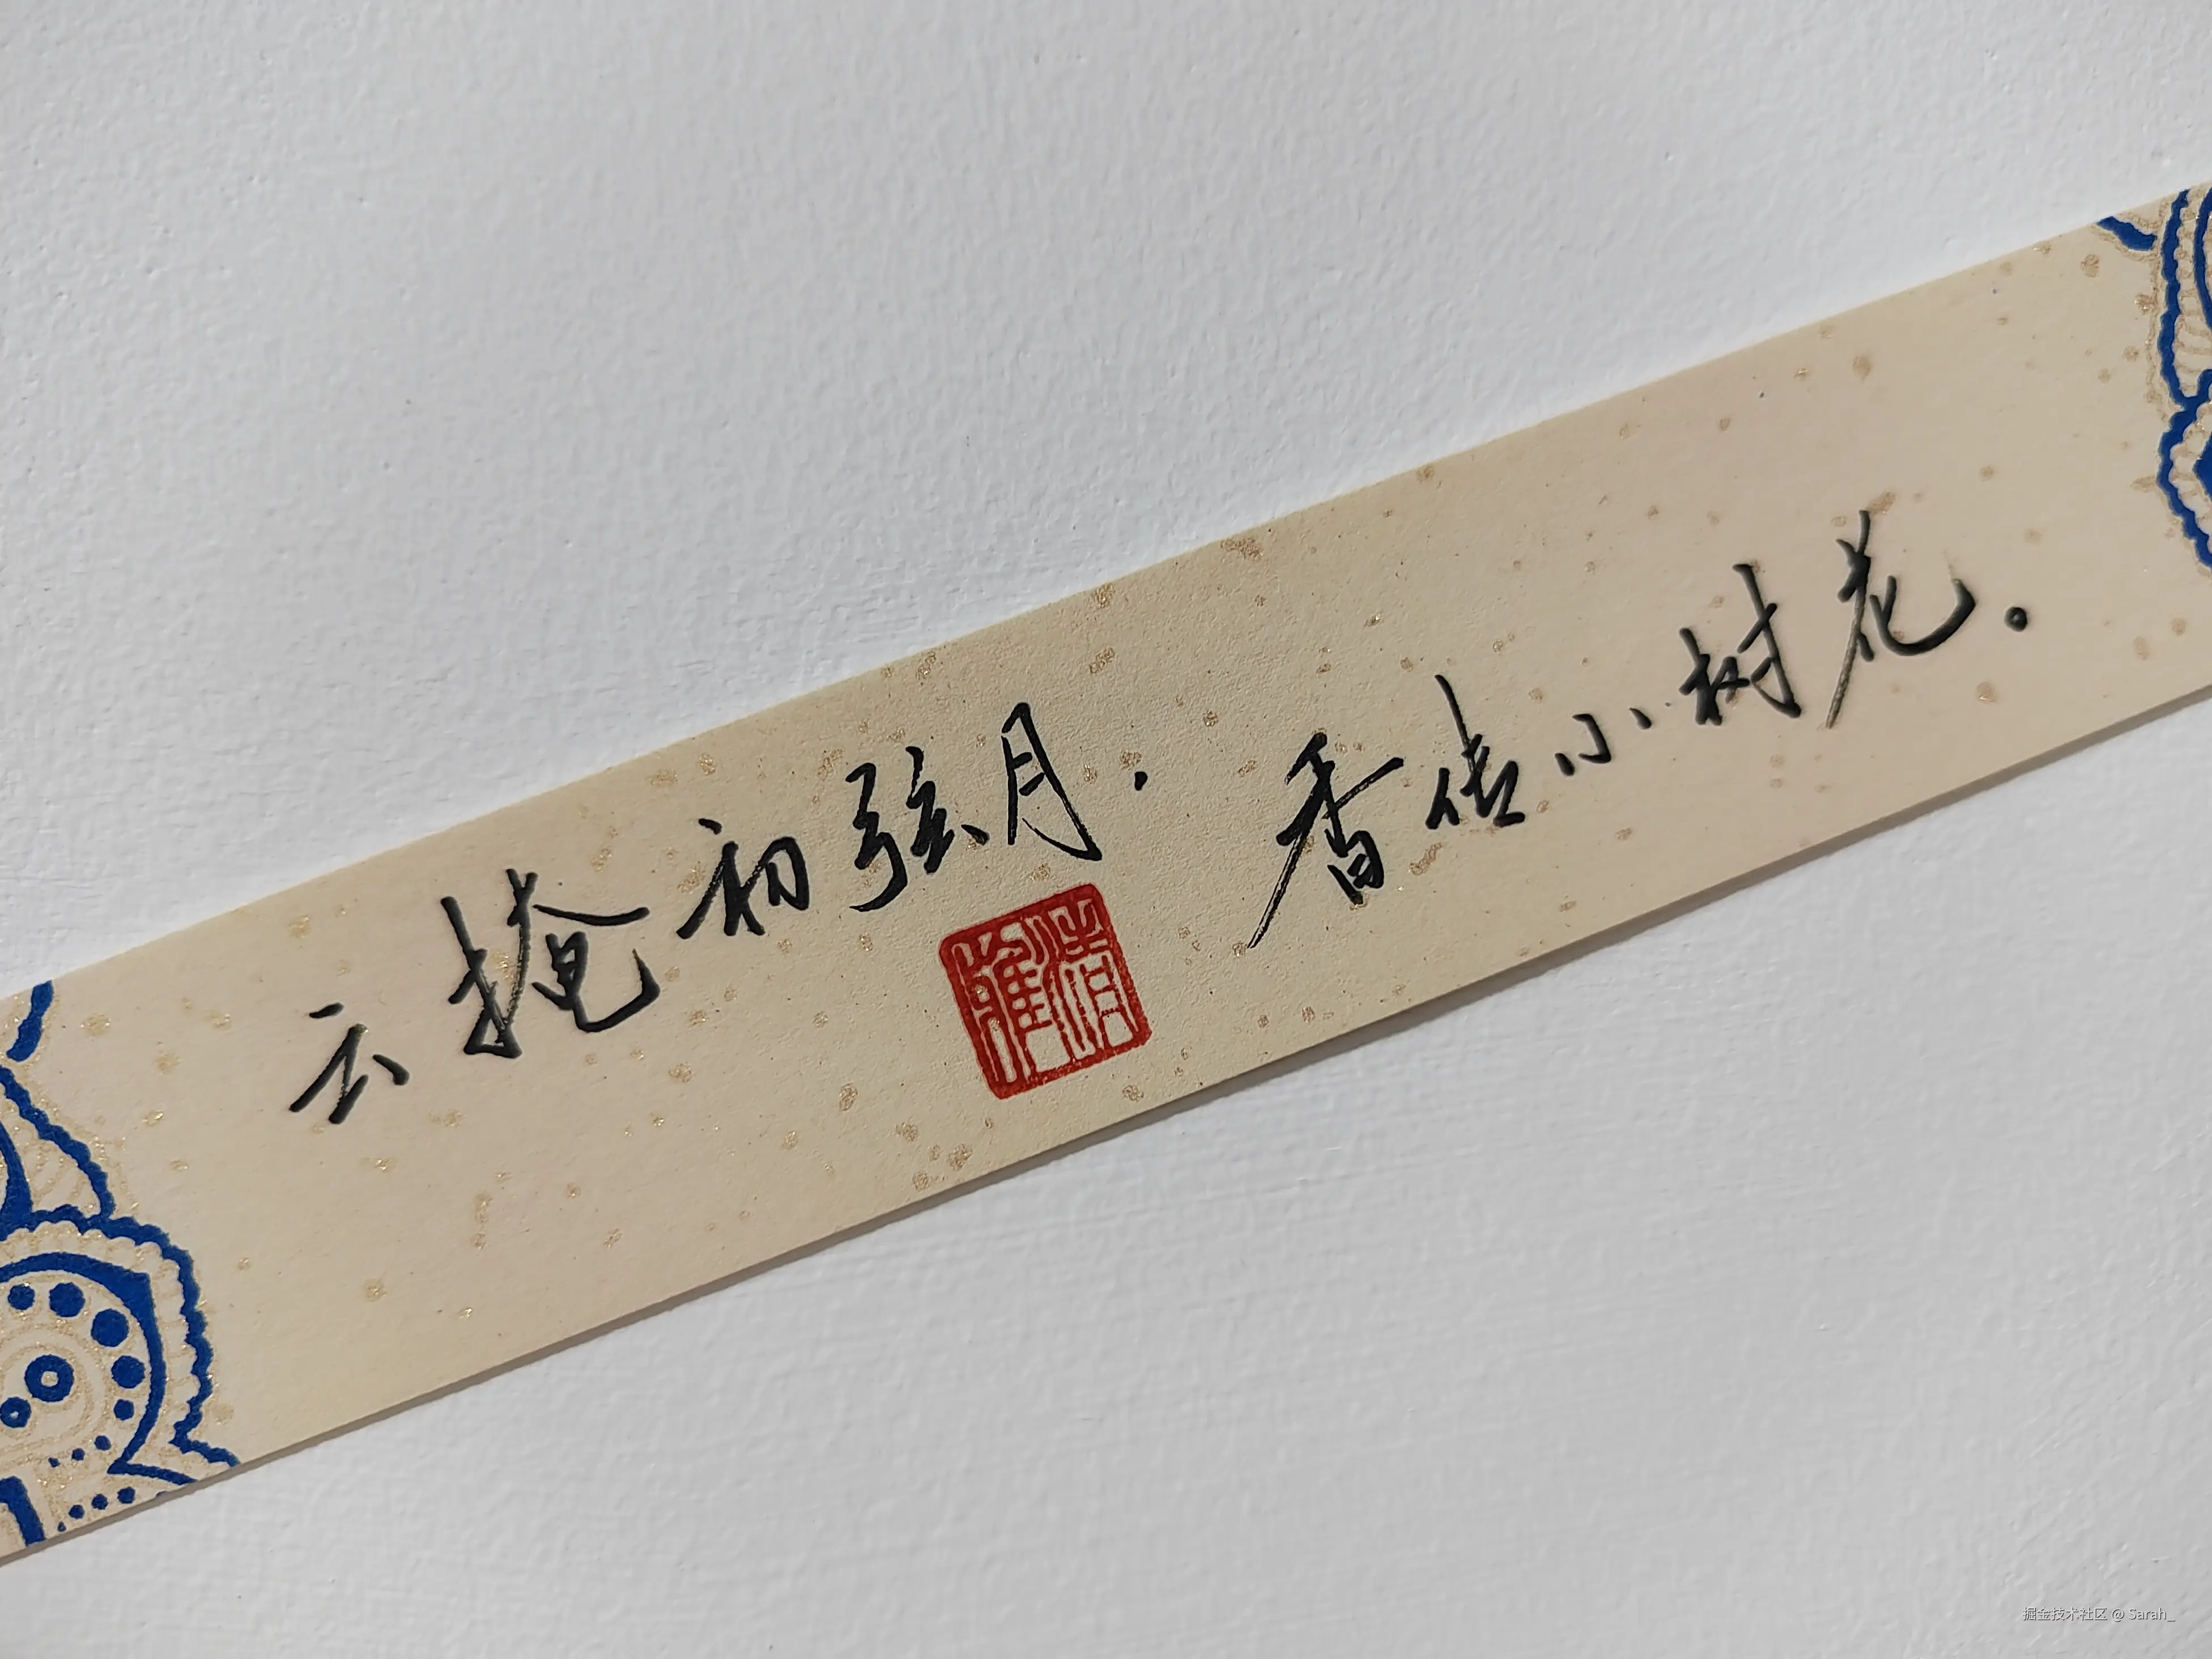 云掩初弦月，香传小树花。
清雅
掘金技术社区 @ Sarah_